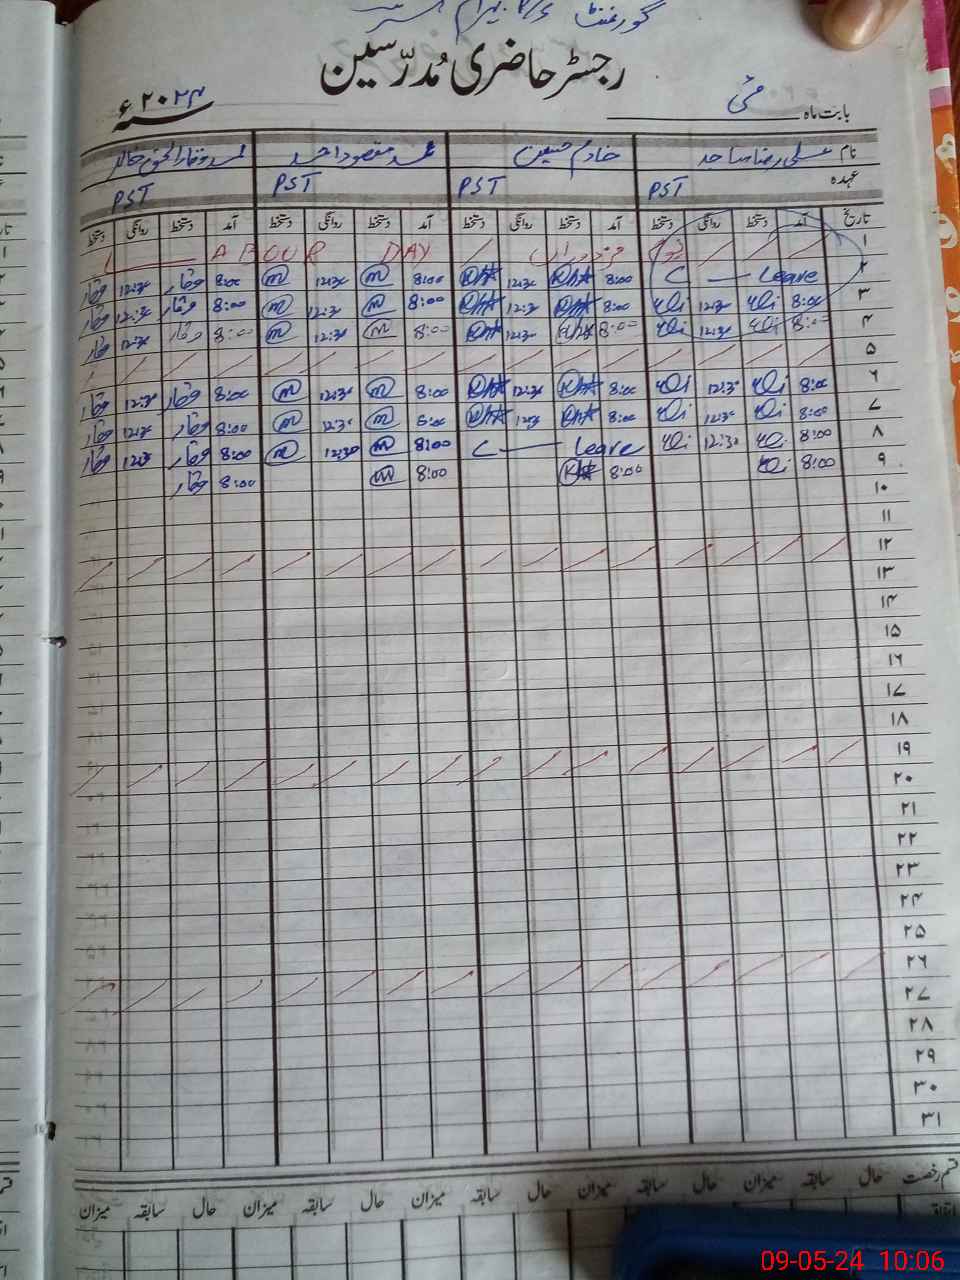 گورنمنٹ
رجسٹر حاضری مُدرّسین
بابت ماہ مئی ۲۰۲۴ء
نام علی رضا ساجد خادم حسین محمد مقصود احمد محمد وقار الحق خالد
عہدہ PST PST PST PST
تاریخ آمد دستخط روانگی دستخط آمد دستخط روانگی دستخط آمد دستخط روانگی دستخط آمد دستخط روانگی دستخط
۱ DAY
۲ Leave 8:00 12:30 8:00 m 12:30 m 8:00 وقار 12:30 وقار
۳ 8:00 Ali 12:30 Ali 8:00 12:30 8:00 m 12:30 m 8:00 وقار 12:30 وقار
۴ 8:00 Ali 12:30 Ali 8:00 12:30 8:00 m 12:30 m 8:00 وقار 12:30 وقار
۵
۶ 8:00 Ali 12:30 Ali 8:00 12:30 8:00 m 12:30 m 8:00 وقار 12:30 وقار
۷ 8:00 Ali 12:30 Ali 8:00 12:30 8:00 m 12:30 m 8:00 وقار 12:30 وقار
۸ 8:00 Ali 12:30 Ali Leave 8:00 m 12:30 m 8:00 وقار 12:30 وقار
۹ 8:00 Ali 8:00 8:00 m 8:00 وقار
۱۰
۱۱
۱۲
۱۳
۱۴
۱۵
۱۶
۱۷
۱۸
۱۹
۲۰
۲۱
۲۲
۲۳
۲۴
۲۵
۲۶
۲۷
۲۸
۲۹
۳۰
۳۱
قسم رخصت حال سابقہ میزان حال سابقہ میزان حال سابقہ میزان حال سابقہ میزان
09-05-24 10:06